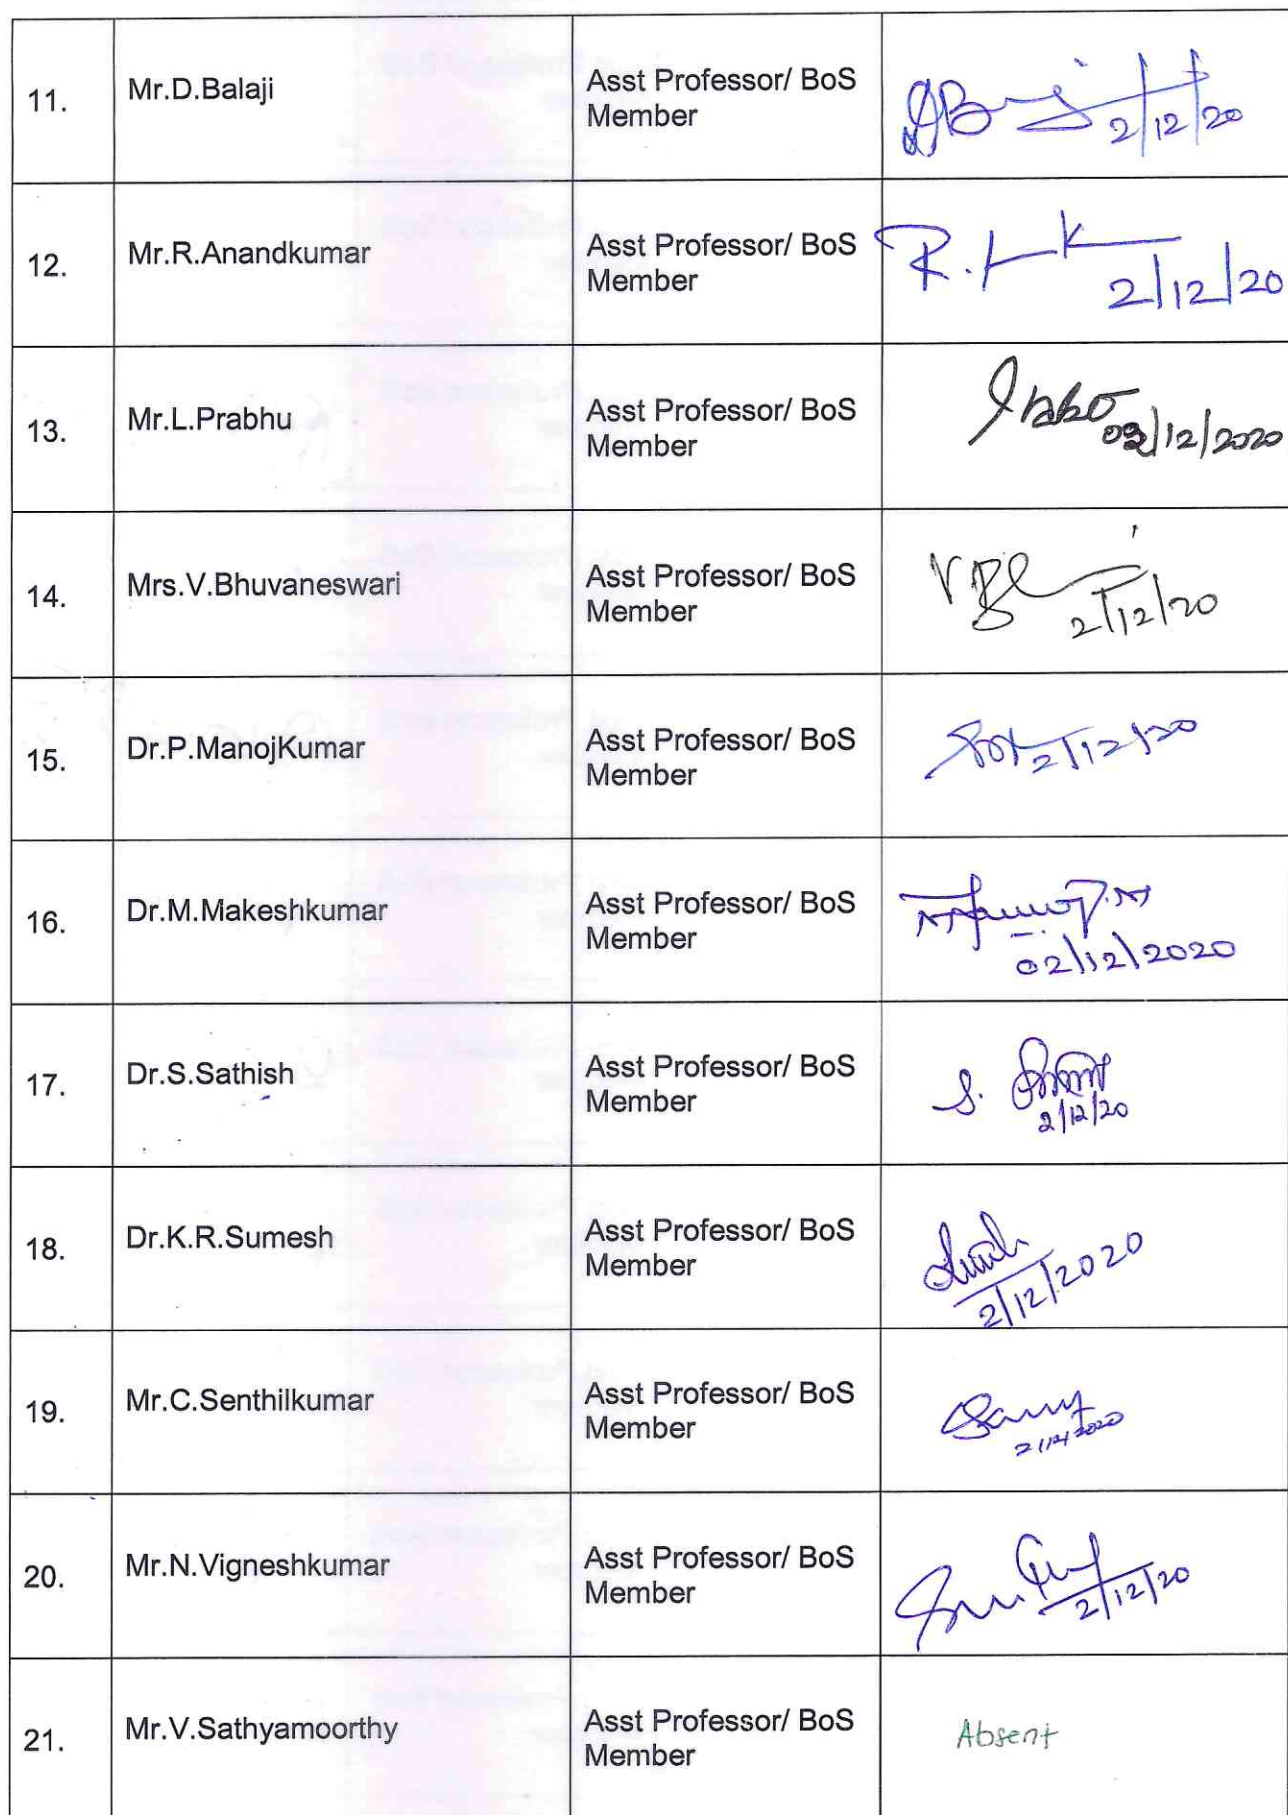 11.
Mr.D.Balaji
Asst Professor/ BoS
Member
2/12/20
12.
Mr.R.Anandkumar
Asst Professor/ BoS
Member
R.
2/12/20
13.
Mr.L.Prabhu
Asst Professor/ BoS
Member
/12/2020
14.
Mrs.V.Bhuvaneswari
Asst Professor/ BoS
Member
2/12/20
15.
Dr.P.ManojKumar
Asst Professor/ BoS
Member
2/12/20
16.
Dr.M.Makeshkumar
Asst Professor/ BoS
Member
02/12/2020
17.
Dr.S.Sathish
Asst Professor/ BoS
Member
S.
2/12/20
18.
Dr.K.R.Sumesh
Asst Professor/ BoS
Member
2/12/2020
19.
Mr.C.Senthilkumar
Asst Professor/ BoS
Member
2/12/2020
20.
Mr.N.Vigneshkumar
Asst Professor/ BoS
Member
2/12/20
21.
Mr.V.Sathyamoorthy
Asst Professor/ BoS
Member
Absent